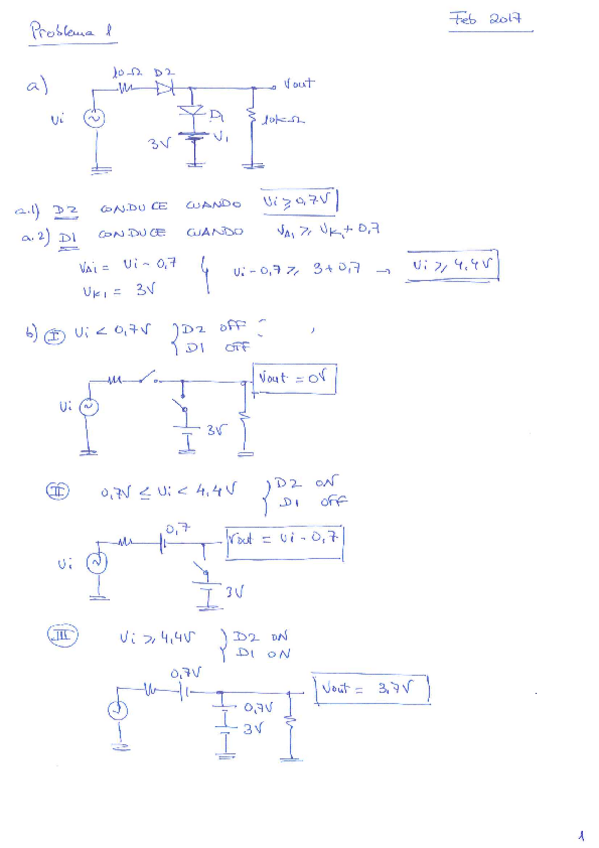 Feb 2017
Problema 1
a)
10Ω D2
Vout
Vi
D1
10kΩ
3V
V1
a.1) D2 CONDUCE CUANDO Vi ≥ 0,7V
a.2) D1 CONDUCE CUANDO VA1 ≥ VK1 + 0,7
VA1 = Vi - 0,7
VK1 = 3V
Vi - 0,7 ≥ 3 + 0,7 → Vi ≥ 4,4V
b) I Vi < 0,7V { D2 OFF
D1 OFF
Vout = 0V
Vi
3V
II 0,7V ≤ Vi < 4,4V { D2 ON
D1 OFF
0,7
Vout = Vi - 0,7
Vi
3V
III Vi ≥ 4,4V { D2 ON
D1 ON
0,7V
Vout = 3,7V
0,7V
3V
1